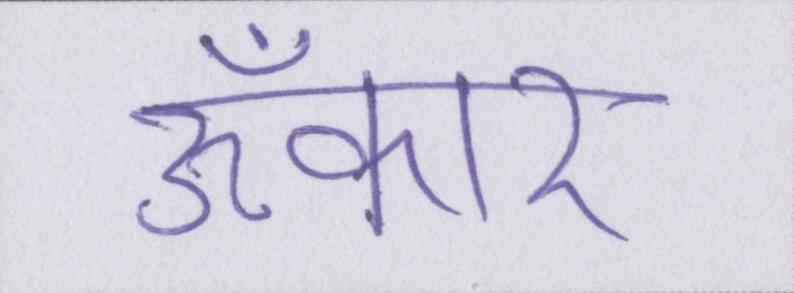 ऊँकार